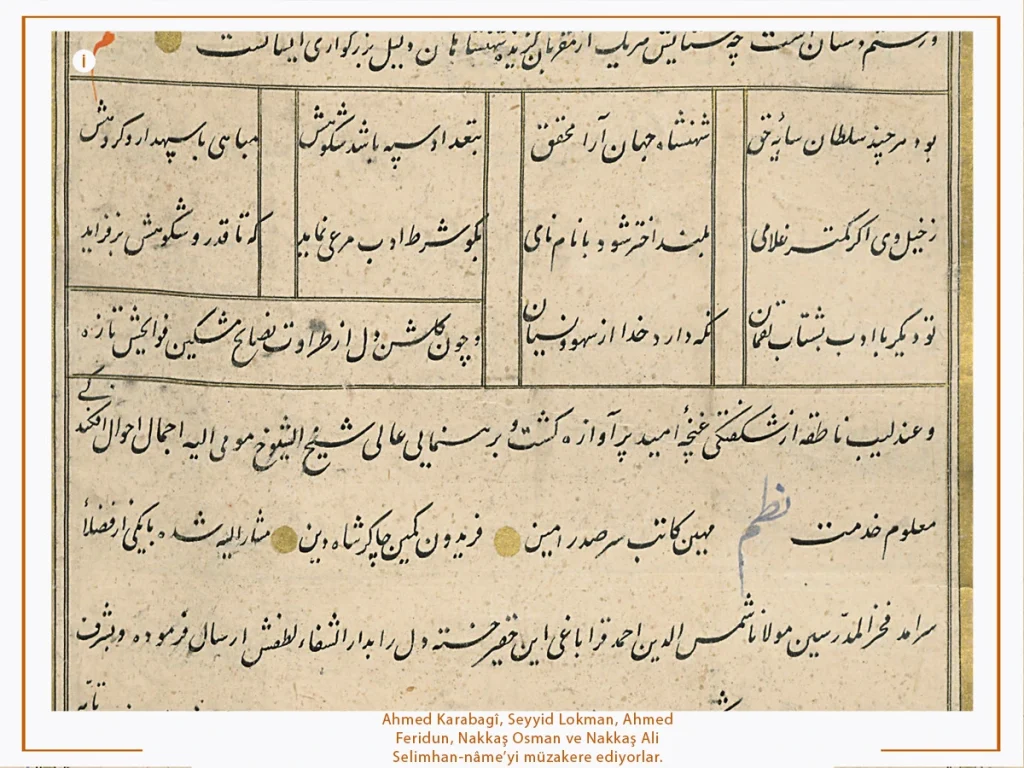 و رستم دستان است چه ستایش هر یک از مقربان گزیده شهنشاهان دلیل بزرگواری ایشانست
بود هر چند سلطان سایهٔ حق شهنشاه جهان آرا محقق بتعداد سپه باشد شکوهش مباهی با سپهدار و گروهش
ز خیل وی اگر کمتر غلامی بلند اختر شود با نام نامی نکو شرط ادب مرعی نماید که تا قدر و شکوهش برفزاید
تو دیگر با ادب بشتاب لقمان نگه دارد خدا از سهو و نسیان و چون گلشن دل از طراوت نصایح مشکین فوایحش تازه
و عندلیب ناطقه از شکفتگی غنچهٔ امید پر آوازه گشت و برهنمایی عالی شیخ الشیوخ مومی الیه اجمال احوال افکندگی
معلوم خدمت نظم مهین کاتب سر صدر امین فریدون کمین چاکر شاه دین مشار الیه شده با یکی از فضلاء
سرامد فخر المدرسین مولانا شمس الدین احمد قراباغی این حقیر خسته دل را بدار الشفاء لطفش ارسال فرموده و بشرف
Ahmed Karabagî, Seyyid Lokman, Ahmed
Feridun, Nakkaş Osman ve Nakkaş Ali
Selimhan-nâme'yi müzakere ediyorlar.